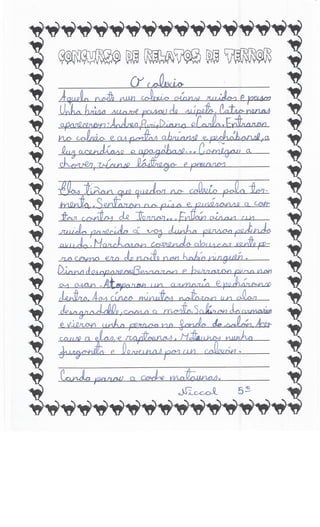 CONCURSO DE RELATOS DE TERROR
O colexio
Aquela noite nun colexio oíanse ruidos e pasos
Unha brisa suave pasou de súpeto. Catro nenas
apareceron: Andrea, Diana e Carla. Entraron
no colexio e as portas abríanse e pechábanse, a
luz acendíase e apagábase... Comezou a
chover, víanse lóstregos e
Elas tiñan que quedar no colexio pola tor-
menta. Sentaron no piso e puxéronse a con-
tar contos de Terror... Entón oíron un
ruido parecido a voz dunha persoa pedindo
axuda. Marcharon correndo a buscar xente pe-
ro como era de noite non había ninguén.
Diana desapareceu Berraron e berraron pero non
os oían. Atoparon un armario e pecháronse
dentro. Aos cinco minutos notaron un olor
desagradable, coma a morto. Saíron do armario
e viron unha persoa no fondo do salón. Acer-
couse a elas e raptounas. Meteunas nunha
furgoneta e levounas por un
Cando parou o coche matounas.
Niccol 5º